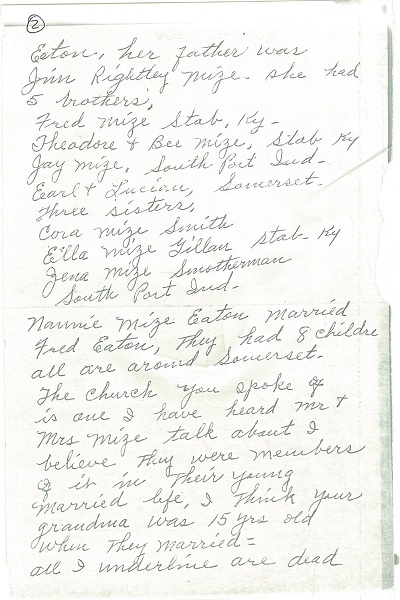 2
Eaton, her father was
Jim Rightley Mize. she had
5 brothers,
Fred Mize Stab, Ky-
Theodore + Bee Mize, Stab Ky
Jay Mize, South Port Ind-
Earl + Lucian, Somerset-
Three sisters,
Cora Mize Smith
Ella Mize Gillan Stab- Ky
Jena Mize Smotherman
South Port Ind-
Nannie Mize Eaton Married
Fred Eaton, They had 8 childre
all are around Somerset-
The church you spoke of
is one I have heard Mr +
Mrs Mize talk about I
believe They were members
of it in Their young
Married life, I Think your
grandma was 15 yrs old
when They married=
all I underline are dead